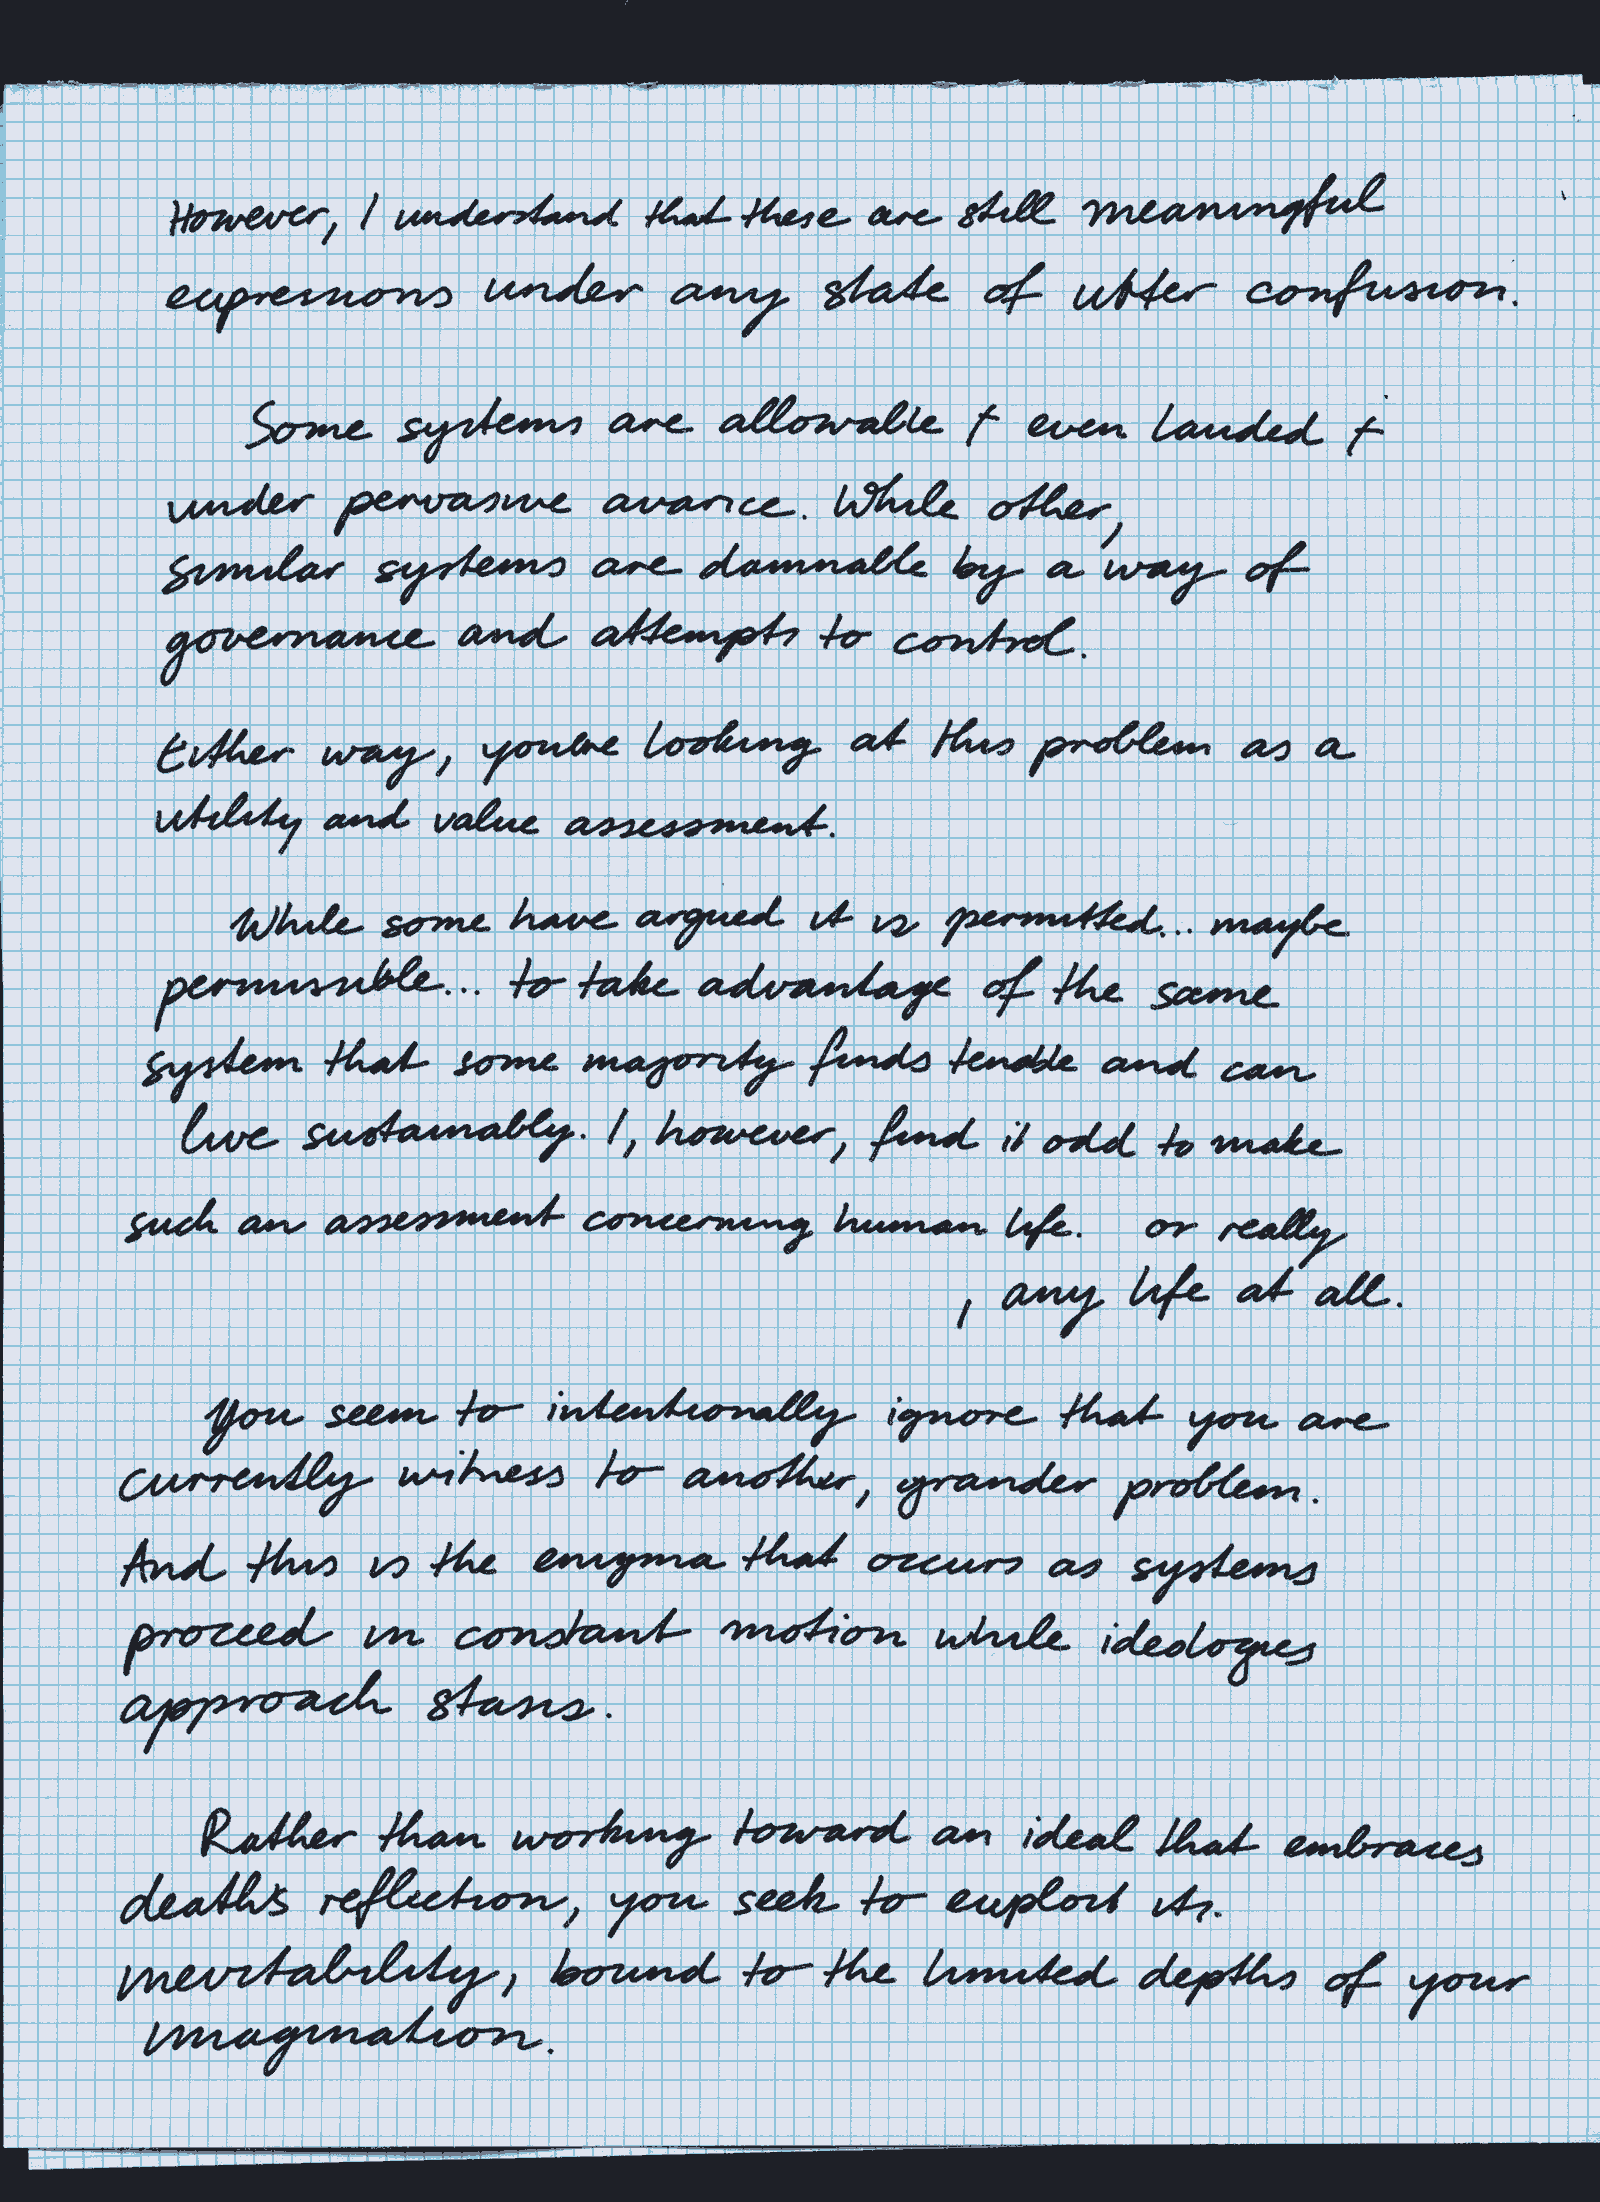 However, I understand that these are still meaningful
expressions under any state of utter confusion.
Some systems are allowable + even lauded +
under pervasive avarice. While other,
similar systems are damnable by a way of
governance and attempts to control.
Either way, you're looking at this problem as a
utility and value assessment.
While some have argued it is permitted... maybe
permissible... to take advantage of the same
system that some majority finds tenable and can
live sustainably. I, however, find it odd to make
such an assessment concerning human life. or really
, any life at all.
You seem to intentionally ignore that you are
currently witness to another, grander problem.
And this is the enigma that occurs as systems
proceed in constant motion while ideologues
approach stasis.
Rather than working toward an ideal that embraces
death's reflection, you seek to exploit its.
inevitability, bound to the limited depths of your
imagination.